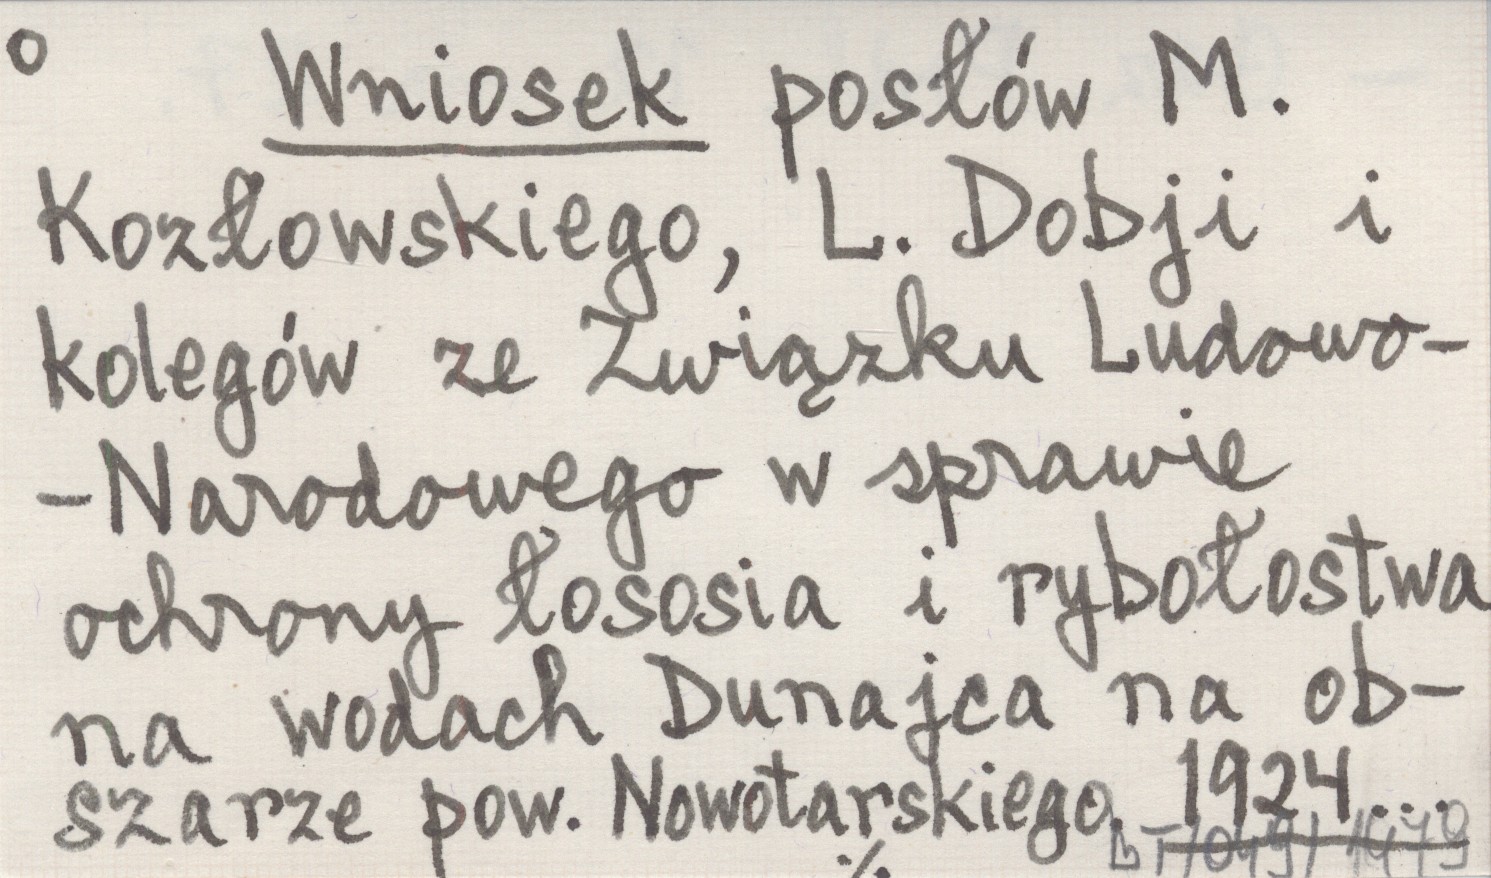 o Wniosek posłów M.
Kozłowskiego, L. Dobji i
kolegów ze Związku Ludowo-
-Narodowego w sprawie
ochrony łososia i rybołostwa
na wodach Dunajca na ob-
szarze pow. Nowotarskiego. 1924...
./.